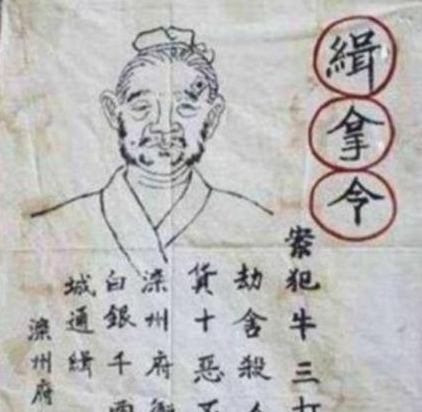 緝拿令
案犯牛三
劫舍殺人
貨十惡不
滦州府衙
白銀千兩
城通緝
滦州府